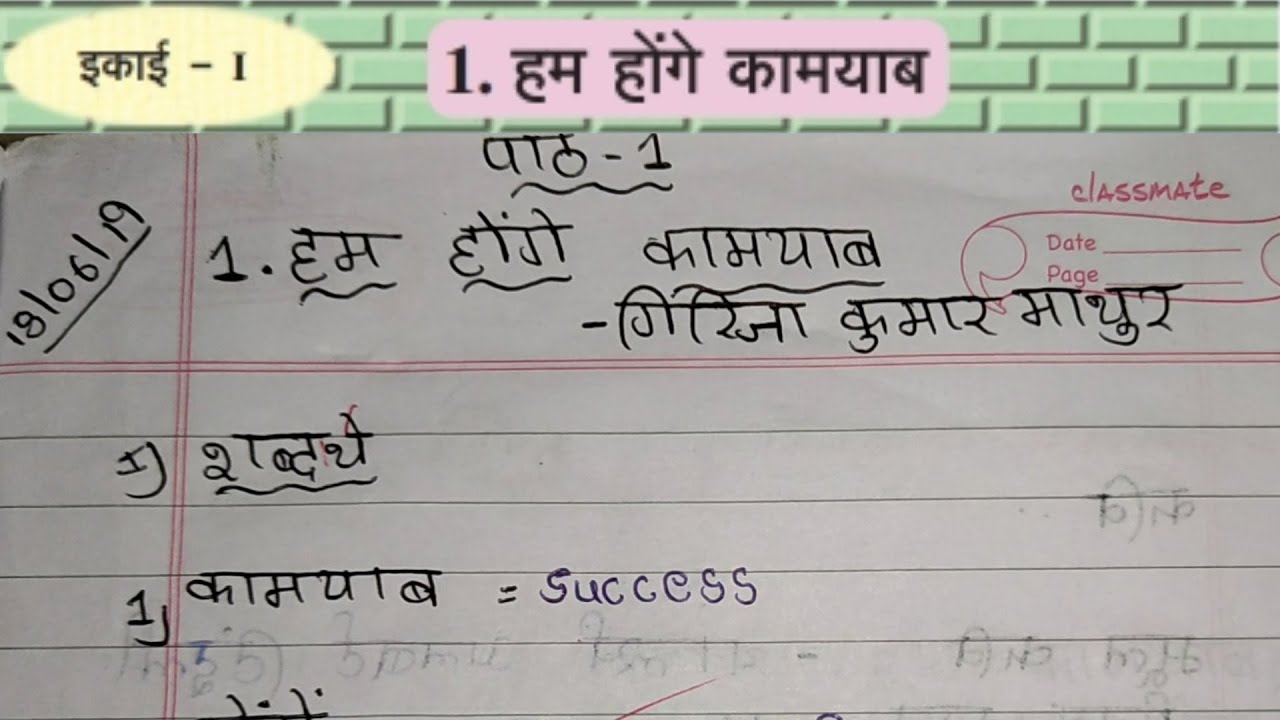 इकाई - I
1. हम होंगे कामयाब
पाठ-1
classmate
18/06/19
1. हम होंगे कामयाब
Date
Page
-गिरिजा कुमार माथुर
1) शब्दर्थ
1) कामयाब = success